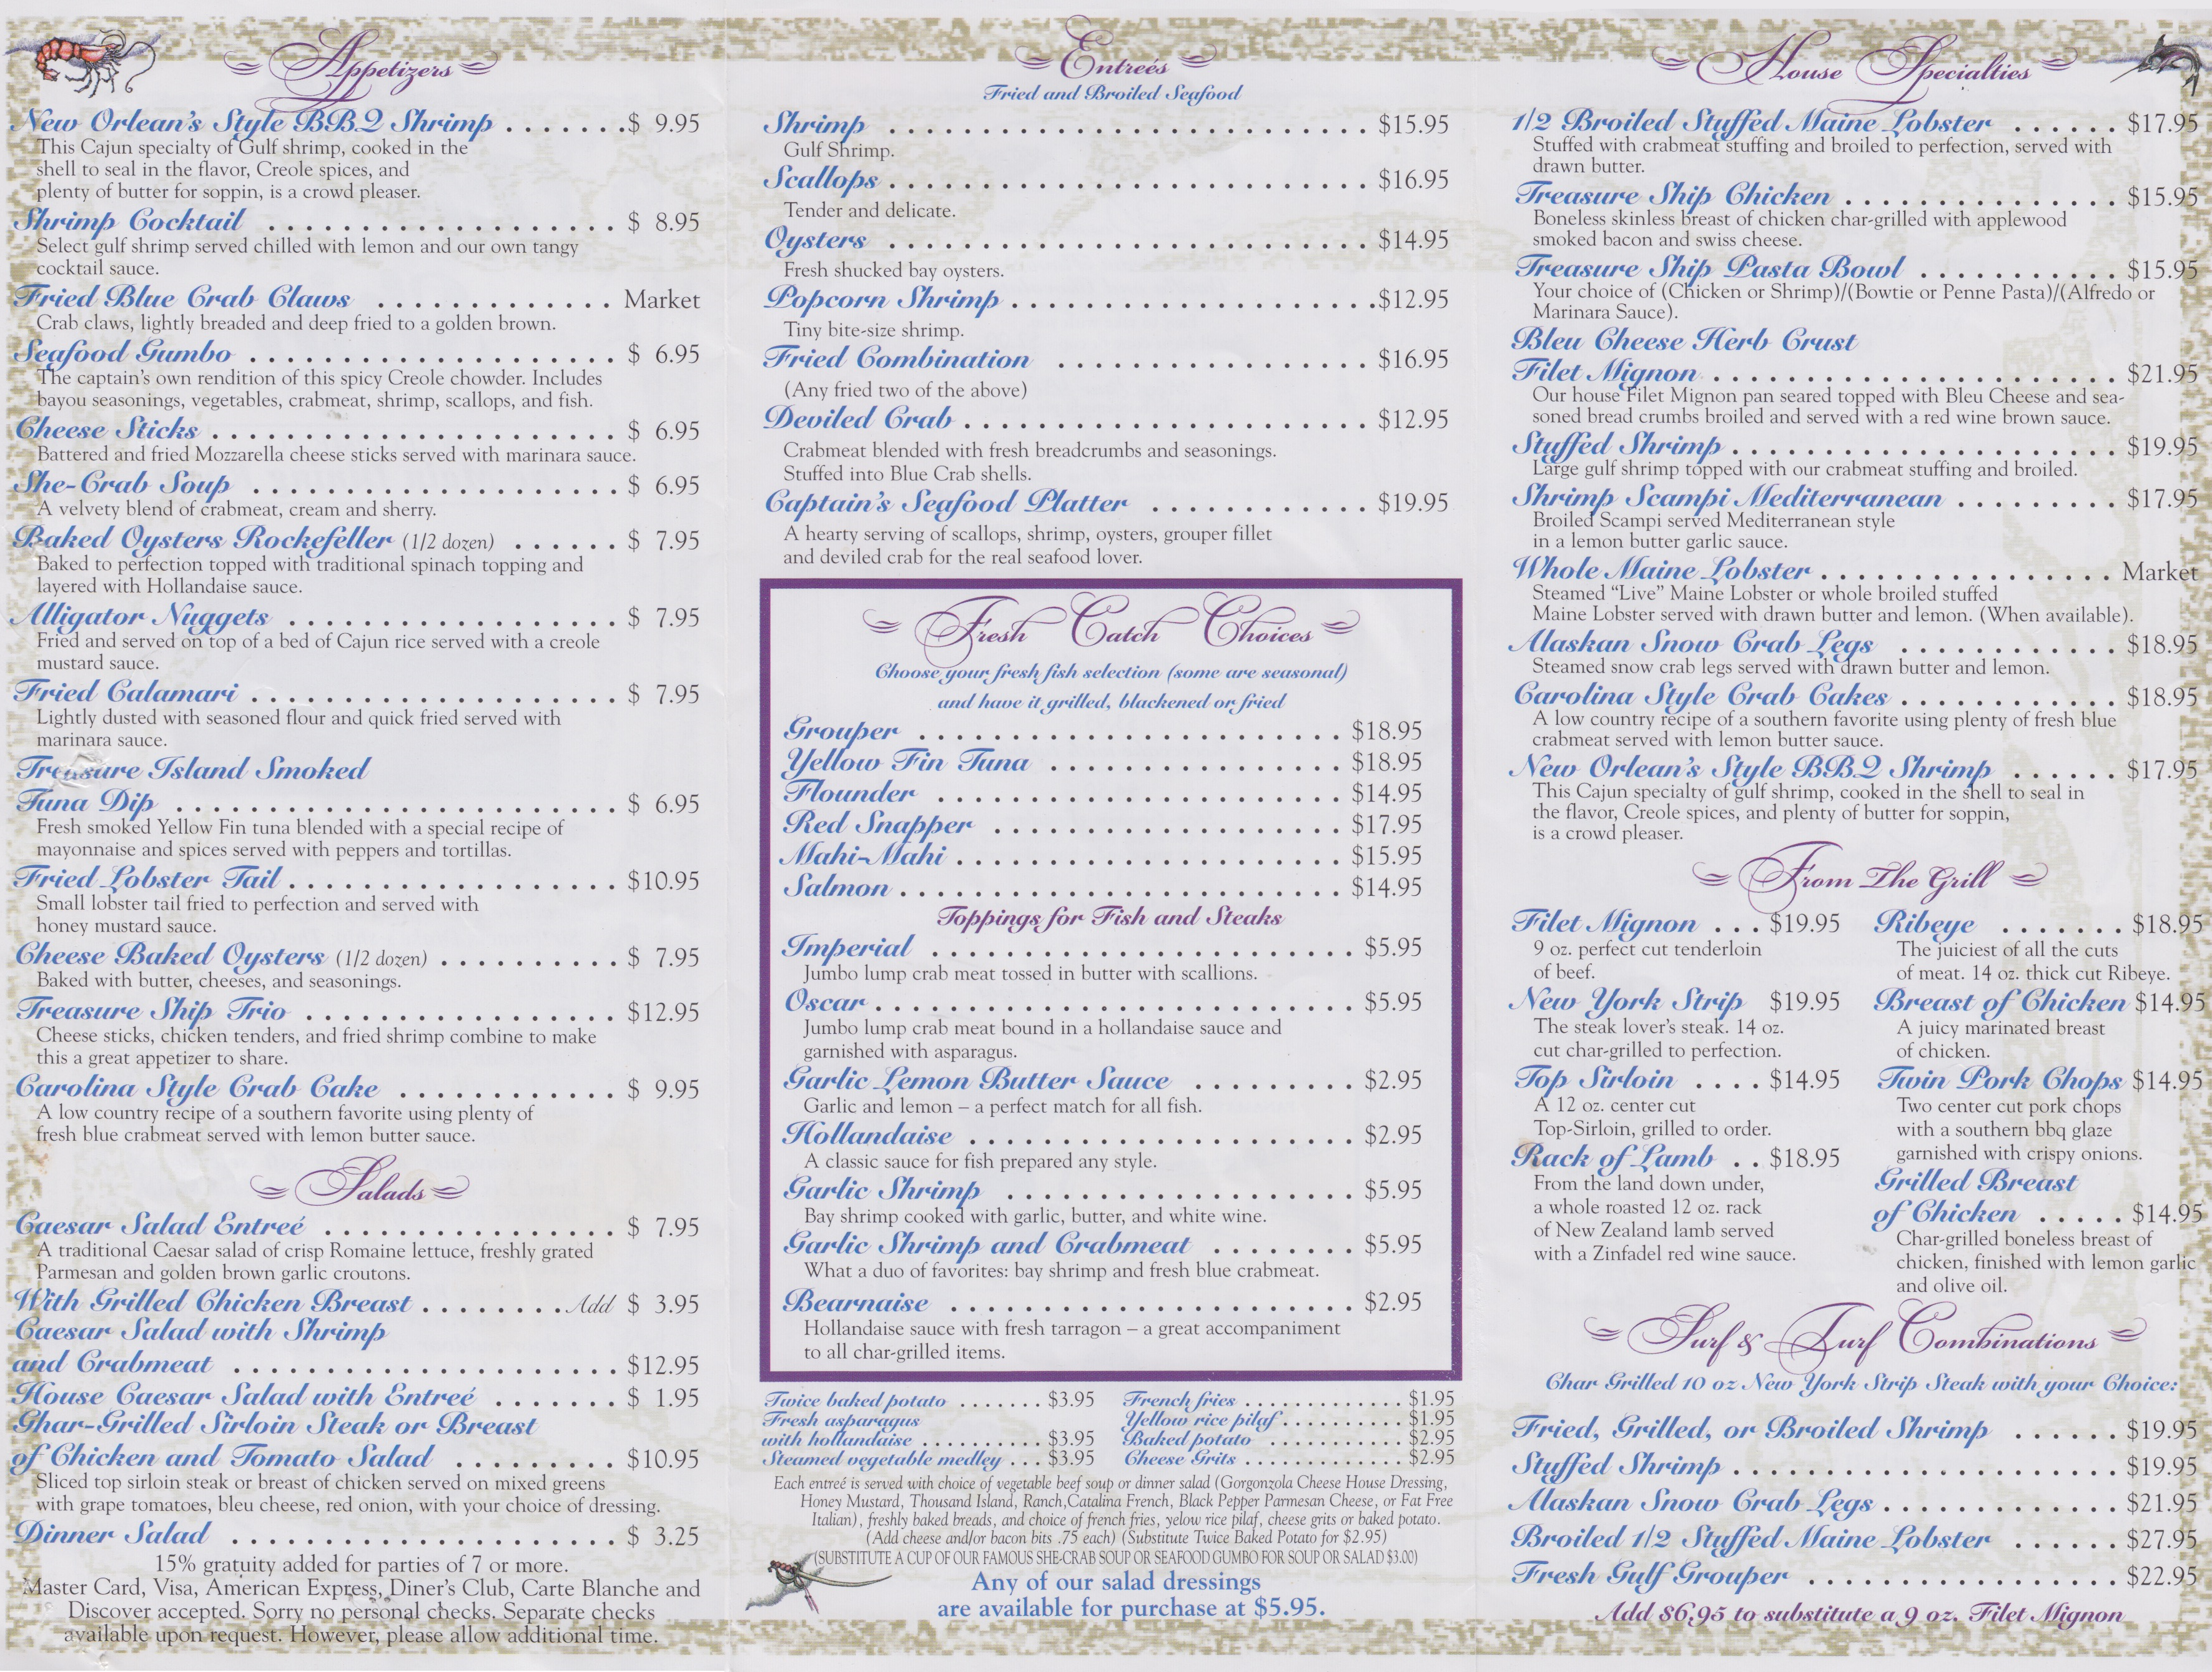 Appetizers
New Orlean's Style BBQ Shrimp . . . . . . .$ 9.95
This Cajun specialty of Gulf shrimp, cooked in the
shell to seal in the flavor, Creole spices, and
plenty of butter for soppin, is a crowd pleaser.
Shrimp Cocktail . . . . . . . . . . $ 8.95
Select gulf shrimp served chilled with lemon and our own tangy
cocktail sauce.
Fried Blue Crab Claws . . . . . . . . . . Market
Crab claws, lightly breaded and deep fried to a golden brown.
Seafood Gumbo . . . . . . . . . . $ 6.95
The captain's own rendition of this spicy Creole chowder. Includes
bayou seasonings, vegetables, crabmeat, shrimp, scallops, and fish.
Cheese Sticks . . . . . . . . . . $ 6.95
Battered and fried Mozzarella cheese sticks served with marinara sauce.
She-Crab Soup . . . . . . . . . . $ 6.95
A velvety blend of crabmeat, cream and sherry.
Baked Oysters Rockefeller (1/2 dozen) . . . . . . $ 7.95
Baked to perfection topped with traditional spinach topping and
layered with Hollandaise sauce.
Alligator Nuggets . . . . . . . . . . $ 7.95
Fried and served on top of a bed of Cajun rice served with a creole
mustard sauce.
Fried Calamari . . . . . . . . . . $ 7.95
Lightly dusted with seasoned flour and quick fried served with
marinara sauce.
Treasure Island Smoked
Tuna Dip . . . . . . . . . . $ 6.95
Fresh smoked Yellow Fin tuna blended with a special recipe of
mayonnaise and spices served with peppers and tortillas.
Fried Lobster Tail . . . . . . . . . . $10.95
Small lobster tail fried to perfection and served with
honey mustard sauce.
Cheese Baked Oysters (1/2 dozen) . . . . . . . . . . $ 7.95
Baked with butter, cheeses, and seasonings.
Treasure Ship Trio . . . . . . . . . . $12.95
Cheese sticks, chicken tenders, and fried shrimp combine to make
this a great appetizer to share.
Carolina Style Crab Cake . . . . . . . . . . $ 9.95
A low country recipe of a southern favorite using plenty of
fresh blue crabmeat served with lemon butter sauce.
Salads
Caesar Salad Entreé . . . . . . . . . . $ 7.95
A traditional Caesar salad of crisp Romaine lettuce, freshly grated
Parmesan and golden brown garlic croutons.
With Grilled Chicken Breast . . . . . . . . .Add $ 3.95
Caesar Salad with Shrimp
and Crabmeat . . . . . . . . . . $12.95
House Caesar Salad with Entreé . . . . . . . $ 1.95
Ghar-Grilled Sirloin Steak or Breast
of Chicken and Tomato Salad . . . . . . . . . $10.95
Sliced top sirloin steak or breast of chicken served on mixed greens
with grape tomatoes, bleu cheese, red onion, with your choice of dressing.
Dinner Salad . . . . . . . . . . $ 3.25
15% gratuity added for parties of 7 or more.
Master Card, Visa, American Express, Diner's Club, Carte Blanche and
Discover accepted. Sorry no personal checks. Separate checks
available upon request. However, please allow additional time.
Entreés
Fried and Broiled Seafood
Shrimp . . . . . . . . . . $15.95
Gulf Shrimp.
Scallops . . . . . . . . . . $16.95
Tender and delicate.
Oysters . . . . . . . . . . $14.95
Fresh shucked bay oysters.
Popcorn Shrimp . . . . . . . . . .$12.95
Tiny bite-size shrimp.
Fried Combination . . . . . . . . . . $16.95
(Any fried two of the above)
Deviled Crab . . . . . . . . . . $12.95
Crabmeat blended with fresh breadcrumbs and seasonings.
Stuffed into Blue Crab shells.
Captain's Seafood Platter . . . . . . . . . . $19.95
A hearty serving of scallops, shrimp, oysters, grouper fillet
and deviled crab for the real seafood lover.
Fresh Catch Choices
Choose your fresh fish selection (some are seasonal)
and have it grilled, blackened or fried
Grouper . . . . . . . . . . $18.95
Yellow Fin Tuna . . . . . . . . . . $18.95
Flounder . . . . . . . . . . $14.95
Red Snapper . . . . . . . . . . $17.95
Mahi-Mahi . . . . . . . . . . $15.95
Salmon . . . . . . . . . . $14.95
Toppings for Fish and Steaks
Imperial . . . . . . . . . . $5.95
Jumbo lump crab meat tossed in butter with scallions.
Oscar . . . . . . . . . . $5.95
Jumbo lump crab meat bound in a hollandaise sauce and
garnished with asparagus.
Garlic Lemon Butter Sauce . . . . . . . . . $2.95
Garlic and lemon – a perfect match for all fish.
Hollandaise . . . . . . . . . . $2.95
A classic sauce for fish prepared any style.
Garlic Shrimp . . . . . . . . . . $5.95
Bay shrimp cooked with garlic, butter, and white wine.
Garlic Shrimp and Crabmeat . . . . . . . . $5.95
What a duo of favorites: bay shrimp and fresh blue crabmeat.
Bearnaise . . . . . . . . . . $2.95
Hollandaise sauce with fresh tarragon – a great accompaniment
to all char-grilled items.
Twice baked potato . . . . . . . $3.95
Fresh asparagus
with hollandaise . . . . . . . . . . $3.95
Steamed vegetable medley . . . $3.95
French fries . . . . . . . . . . $1.95
Yellow rice pilaf . . . . . . . . . . $1.95
Baked potato . . . . . . . . . . $2.95
Cheese Grits . . . . . . . . . . $2.95
Each entreé is served with choice of vegetable beef soup or dinner salad (Gorgonzola Cheese House Dressing,
Honey Mustard, Thousand Island, Ranch,Catalina French, Black Pepper Parmesan Cheese, or Fat Free
Italian), freshly baked breads, and choice of french fries, yelow rice pilaf, cheese grits or baked potato.
(Add cheese and/or bacon bits .75 each) (Substitute Twice Baked Potato for $2.95)
(SUBSTITUTE A CUP OF OUR FAMOUS SHE-CRAB SOUP OR SEAFOOD GUMBO FOR SOUP OR SALAD $3.00)
Any of our salad dressings
are available for purchase at $5.95.
House Specialties
1/2 Broiled Stuffed Maine Lobster . . . . . . $17.95
Stuffed with crabmeat stuffing and broiled to perfection, served with
drawn butter.
Treasure Ship Chicken . . . . . . . . . . $15.95
Boneless skinless breast of chicken char-grilled with applewood
smoked bacon and swiss cheese.
Treasure Ship Pasta Bowl . . . . . . . . . . $15.95
Your choice of (Chicken or Shrimp)/(Bowtie or Penne Pasta)/(Alfredo or
Marinara Sauce).
Bleu Cheese Herb Crust
Filet Mignon . . . . . . . . . . $21.95
Our house Filet Mignon pan seared topped with Bleu Cheese and sea-
soned bread crumbs broiled and served with a red wine brown sauce.
Stuffed Shrimp . . . . . . . . . . $19.95
Large gulf shrimp topped with our crabmeat stuffing and broiled.
Shrimp Scampi Mediterranean . . . . . . . . . $17.95
Broiled Scampi served Mediterranean style
in a lemon butter garlic sauce.
Whole Maine Lobster . . . . . . . . . . Market
Steamed “Live” Maine Lobster or whole broiled stuffed
Maine Lobster served with drawn butter and lemon. (When available).
Alaskan Snow Crab Legs . . . . . . . . . . $18.95
Steamed snow crab legs served with drawn butter and lemon.
Carolina Style Crab Cakes . . . . . . . . . . $18.95
A low country recipe of a southern favorite using plenty of fresh blue
crabmeat served with lemon butter sauce.
New Orlean's Style BBQ Shrimp . . . . . . $17.95
This Cajun specialty of gulf shrimp, cooked in the shell to seal in
the flavor, Creole spices, and plenty of butter for soppin,
is a crowd pleaser.
From The Grill
Filet Mignon . . . $19.95
9 oz. perfect cut tenderloin
of beef.
New York Strip $19.95
The steak lover's steak. 14 oz.
cut char-grilled to perfection.
Top Sirloin . . . . $14.95
A 12 oz. center cut
Top-Sirloin, grilled to order.
Rack of Lamb . . $18.95
From the land down under,
a whole roasted 12 oz. rack
of New Zealand lamb served
with a Zinfadel red wine sauce.
Ribeye . . . . . . . $18.95
The juiciest of all the cuts
of meat. 14 oz. thick cut Ribeye.
Breast of Chicken $14.95
A juicy marinated breast
of chicken.
Twin Pork Chops $14.95
Two center cut pork chops
with a southern bbq glaze
garnished with crispy onions.
Grilled Breast
of Chicken . . . . . $14.95
Char-grilled boneless breast of
chicken, finished with lemon garlic
and olive oil.
Surf & Turf Combinations
Char Grilled 10 oz New York Strip Steak with your Choice:
Fried, Grilled, or Broiled Shrimp . . . . . . $19.95
Stuffed Shrimp . . . . . . . . . . $19.95
Alaskan Snow Crab Legs . . . . . . . . . . $21.95
Broiled 1/2 Stuffed Maine Lobster . . . . . . $27.95
Fresh Gulf Grouper . . . . . . . . . . $22.95
Add $6.95 to substitute a 9 oz. Filet Mignon